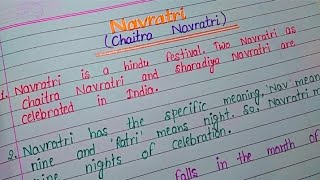 Navratri
(Chaitra Navratri)
1. Navratri is a hindu festival. Two Navratri as
chaitra Navratri and sharadiya Navratri are
celebrated in India.
2. Navratri has the specific meaning. 'Nav' mean
nine and 'Ratri' means night. So, Navratri m
nine nights of celebration.
falls in the month of